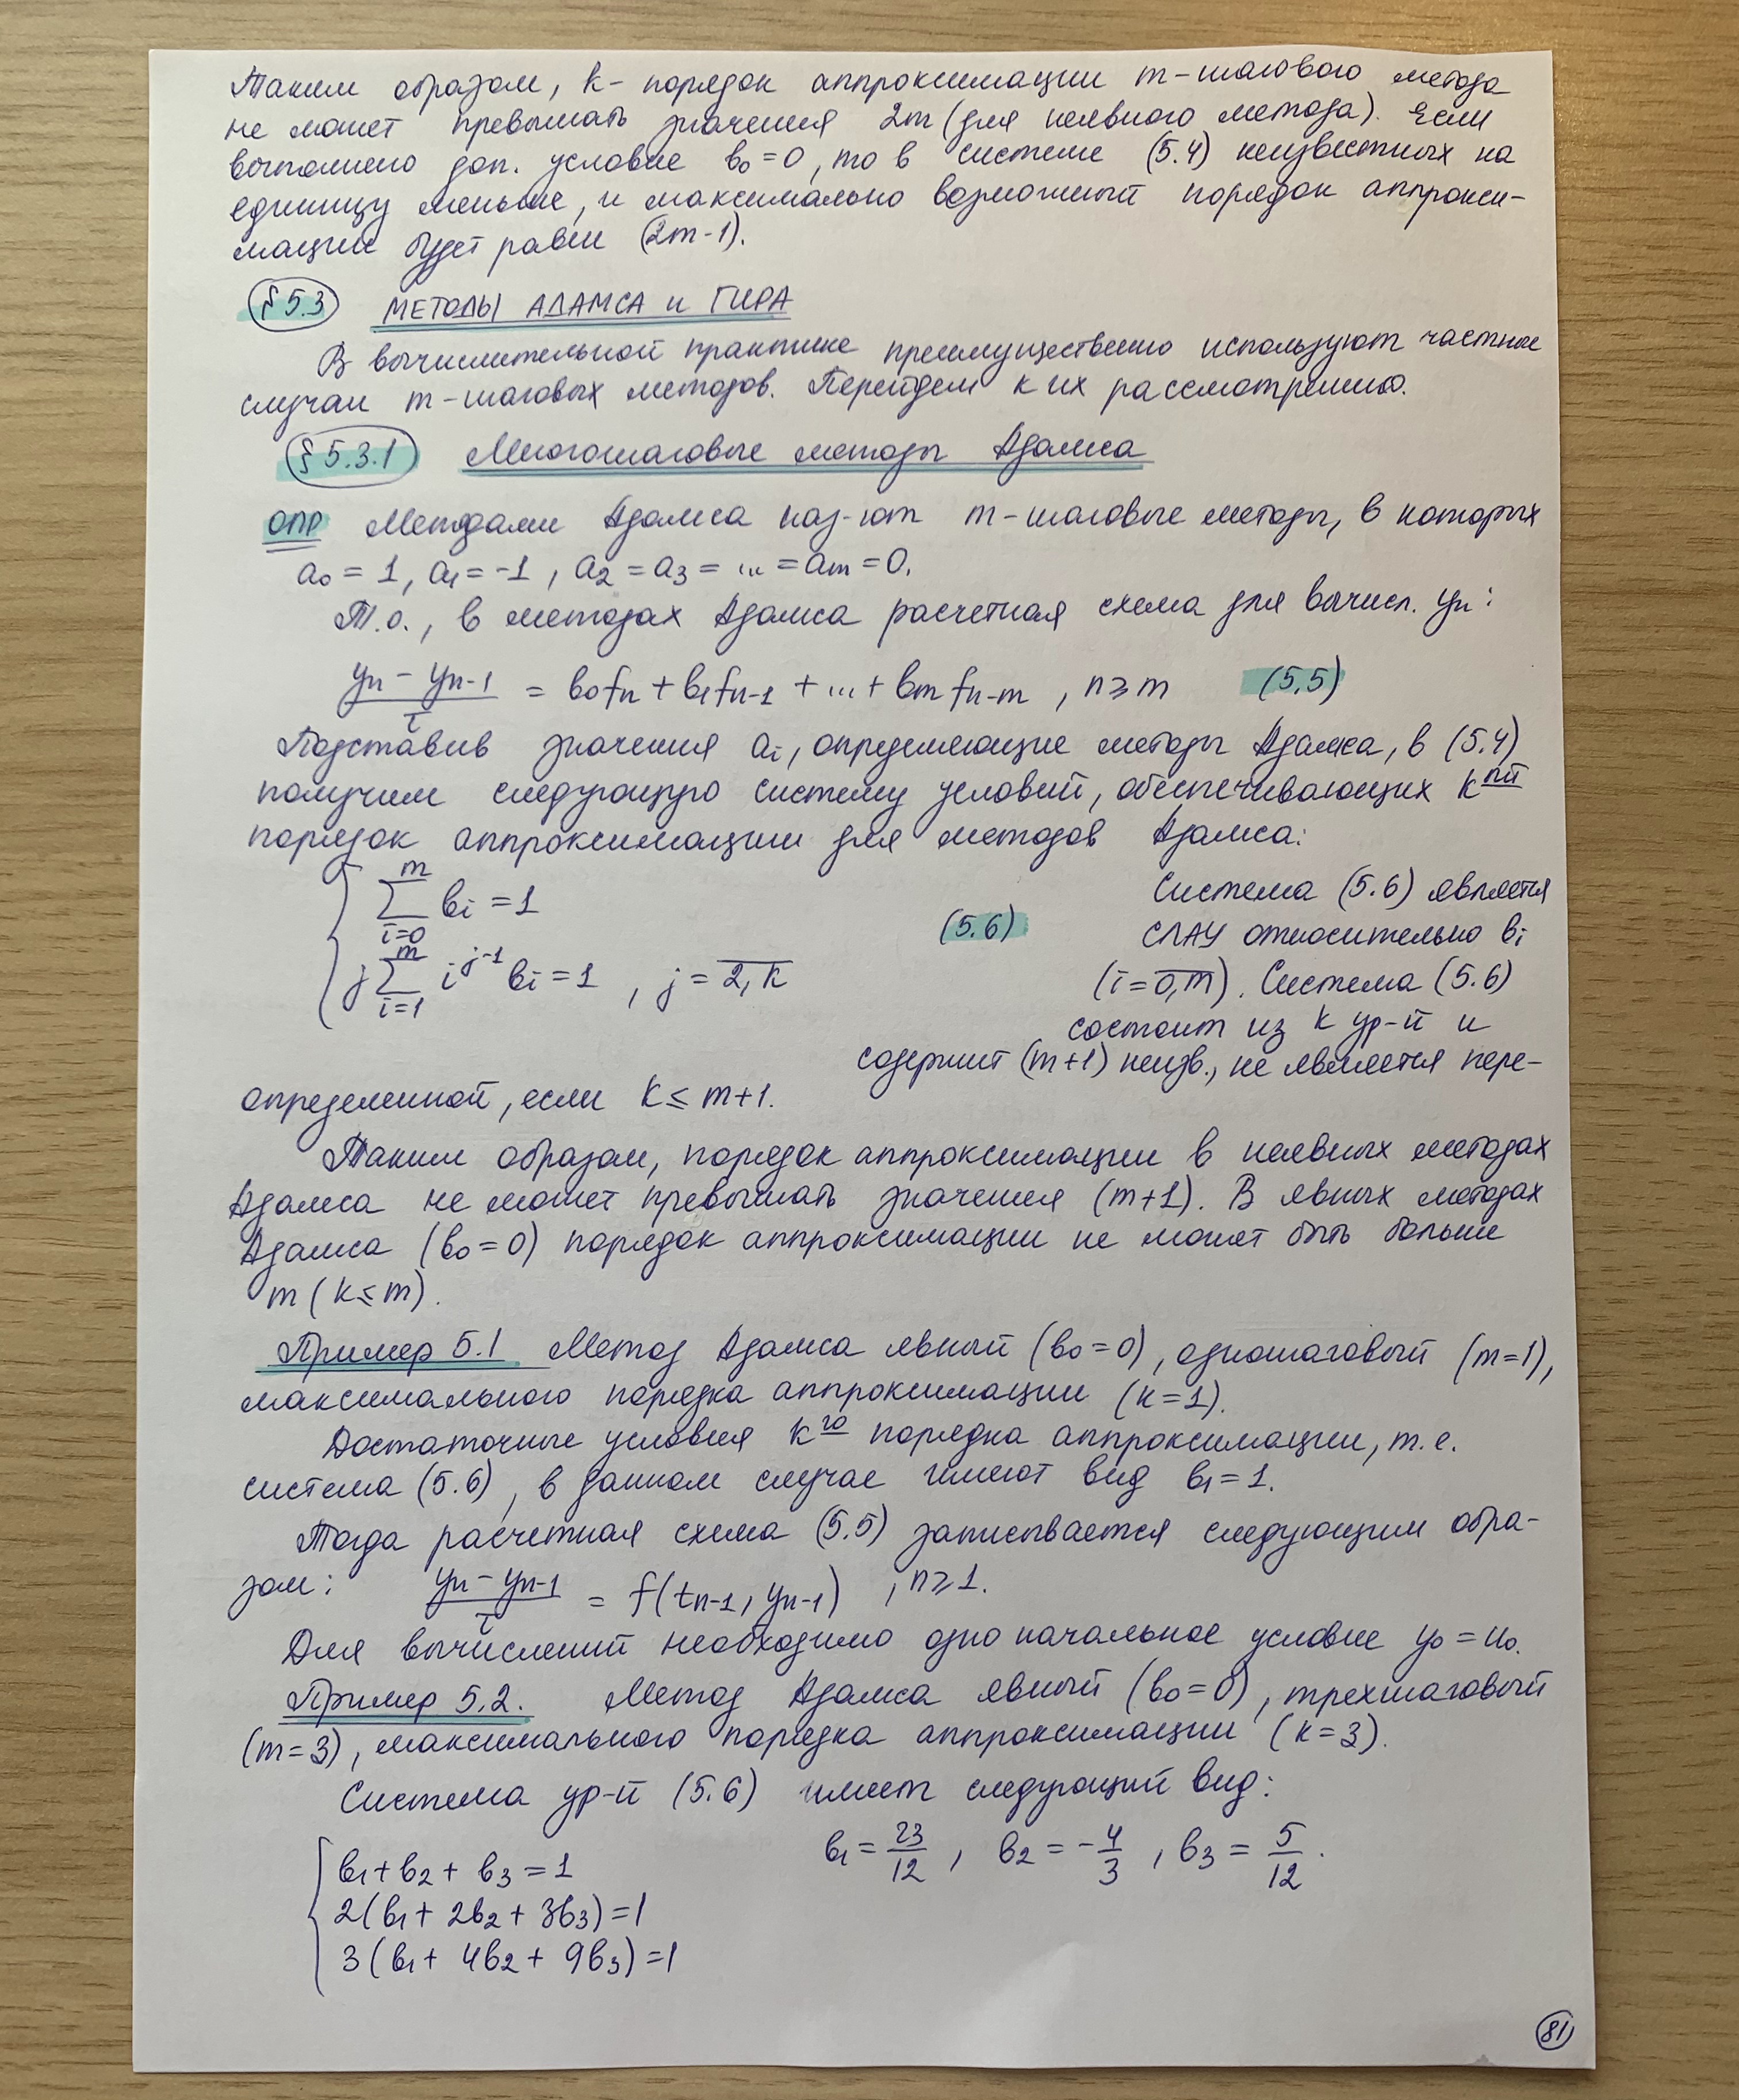 Таким образом, k - порядок аппроксимации m-шагового метода
не может превышать значения 2m (для неявного метода). Если
выполнено доп. условие b₀ = 0, то в системе (5.4) неизвестных на
единицу меньше, и максимально возможный порядок аппрокси-
мации будет равен (2m-1).
§ 5.3 МЕТОДЫ АДАМСА И ГИРА
В вычислительной практике преимущественно используют частные
случаи m-шаговых методов. Перейдем к их рассмотрению.
§ 5.3.1 Многошаговые методы Адамса
ОПР Методами Адамса наз-ют m-шаговые методы, в которых
a₀ = 1, a₁ = -1, a₂ = a₃ = ... = aₘ = 0.
Т.о., в методах Адамса расчетная схема для вычисл. yₙ:
(yₙ - yₙ₋₁)/τ = b₀fₙ + b₁fₙ₋₁ + ... + bₘfₙ₋ₘ, n ≥ m (5.5)
Подставив значения aᵢ, определяющие методы Адамса, в (5.4)
получим следующую систему условий, обеспечивающих k^ый
порядок аппроксимации для методов Адамса:
{ ∑_{i=0}^{m} bᵢ = 1
{ j ∑_{i=1}^{m} i^{j-1} bᵢ = 1, j = \overline{2, k} (5.6)
Система (5.6) является
СЛАУ относительно bᵢ
(i = \overline{0,m}). Система (5.6)
состоит из k ур-й и
содержит (m+1) неизв., не является пере-
определенной, если k ≤ m+1.
Таким образом, порядок аппроксимации в неявных методах
Адамса не может превышать значения (m+1). В явных методах
Адамса (b₀ = 0) порядок аппроксимации не может быть больше
m (k ≤ m).
Пример 5.1 Метод Адамса явный (b₀ = 0), одношаговый (m=1),
максимального порядка аппроксимации (k = 1).
Достаточные условия k^го порядка аппроксимации, т.е.
система (5.6), в данном случае имеют вид b₁ = 1.
Тогда расчетная схема (5.5) записывается следующим обра-
зом: (yₙ - yₙ₋₁)/τ = f(tₙ₋₁, yₙ₋₁), n ≥ 1.
Для вычислений необходимо одно начальное условие y₀ = u₀.
Пример 5.2. Метод Адамса явный (b₀ = 0), трехшаговый
(m = 3), максимального порядка аппроксимации (k = 3).
Система ур-й (5.6) имеет следующий вид:
{ b₁ + b₂ + b₃ = 1
{ 2(b₁ + 2b₂ + 3b₃) = 1
{ 3(b₁ + 4b₂ + 9b₃) = 1
b₁ = 23/12, b₂ = -4/3, b₃ = 5/12.
81